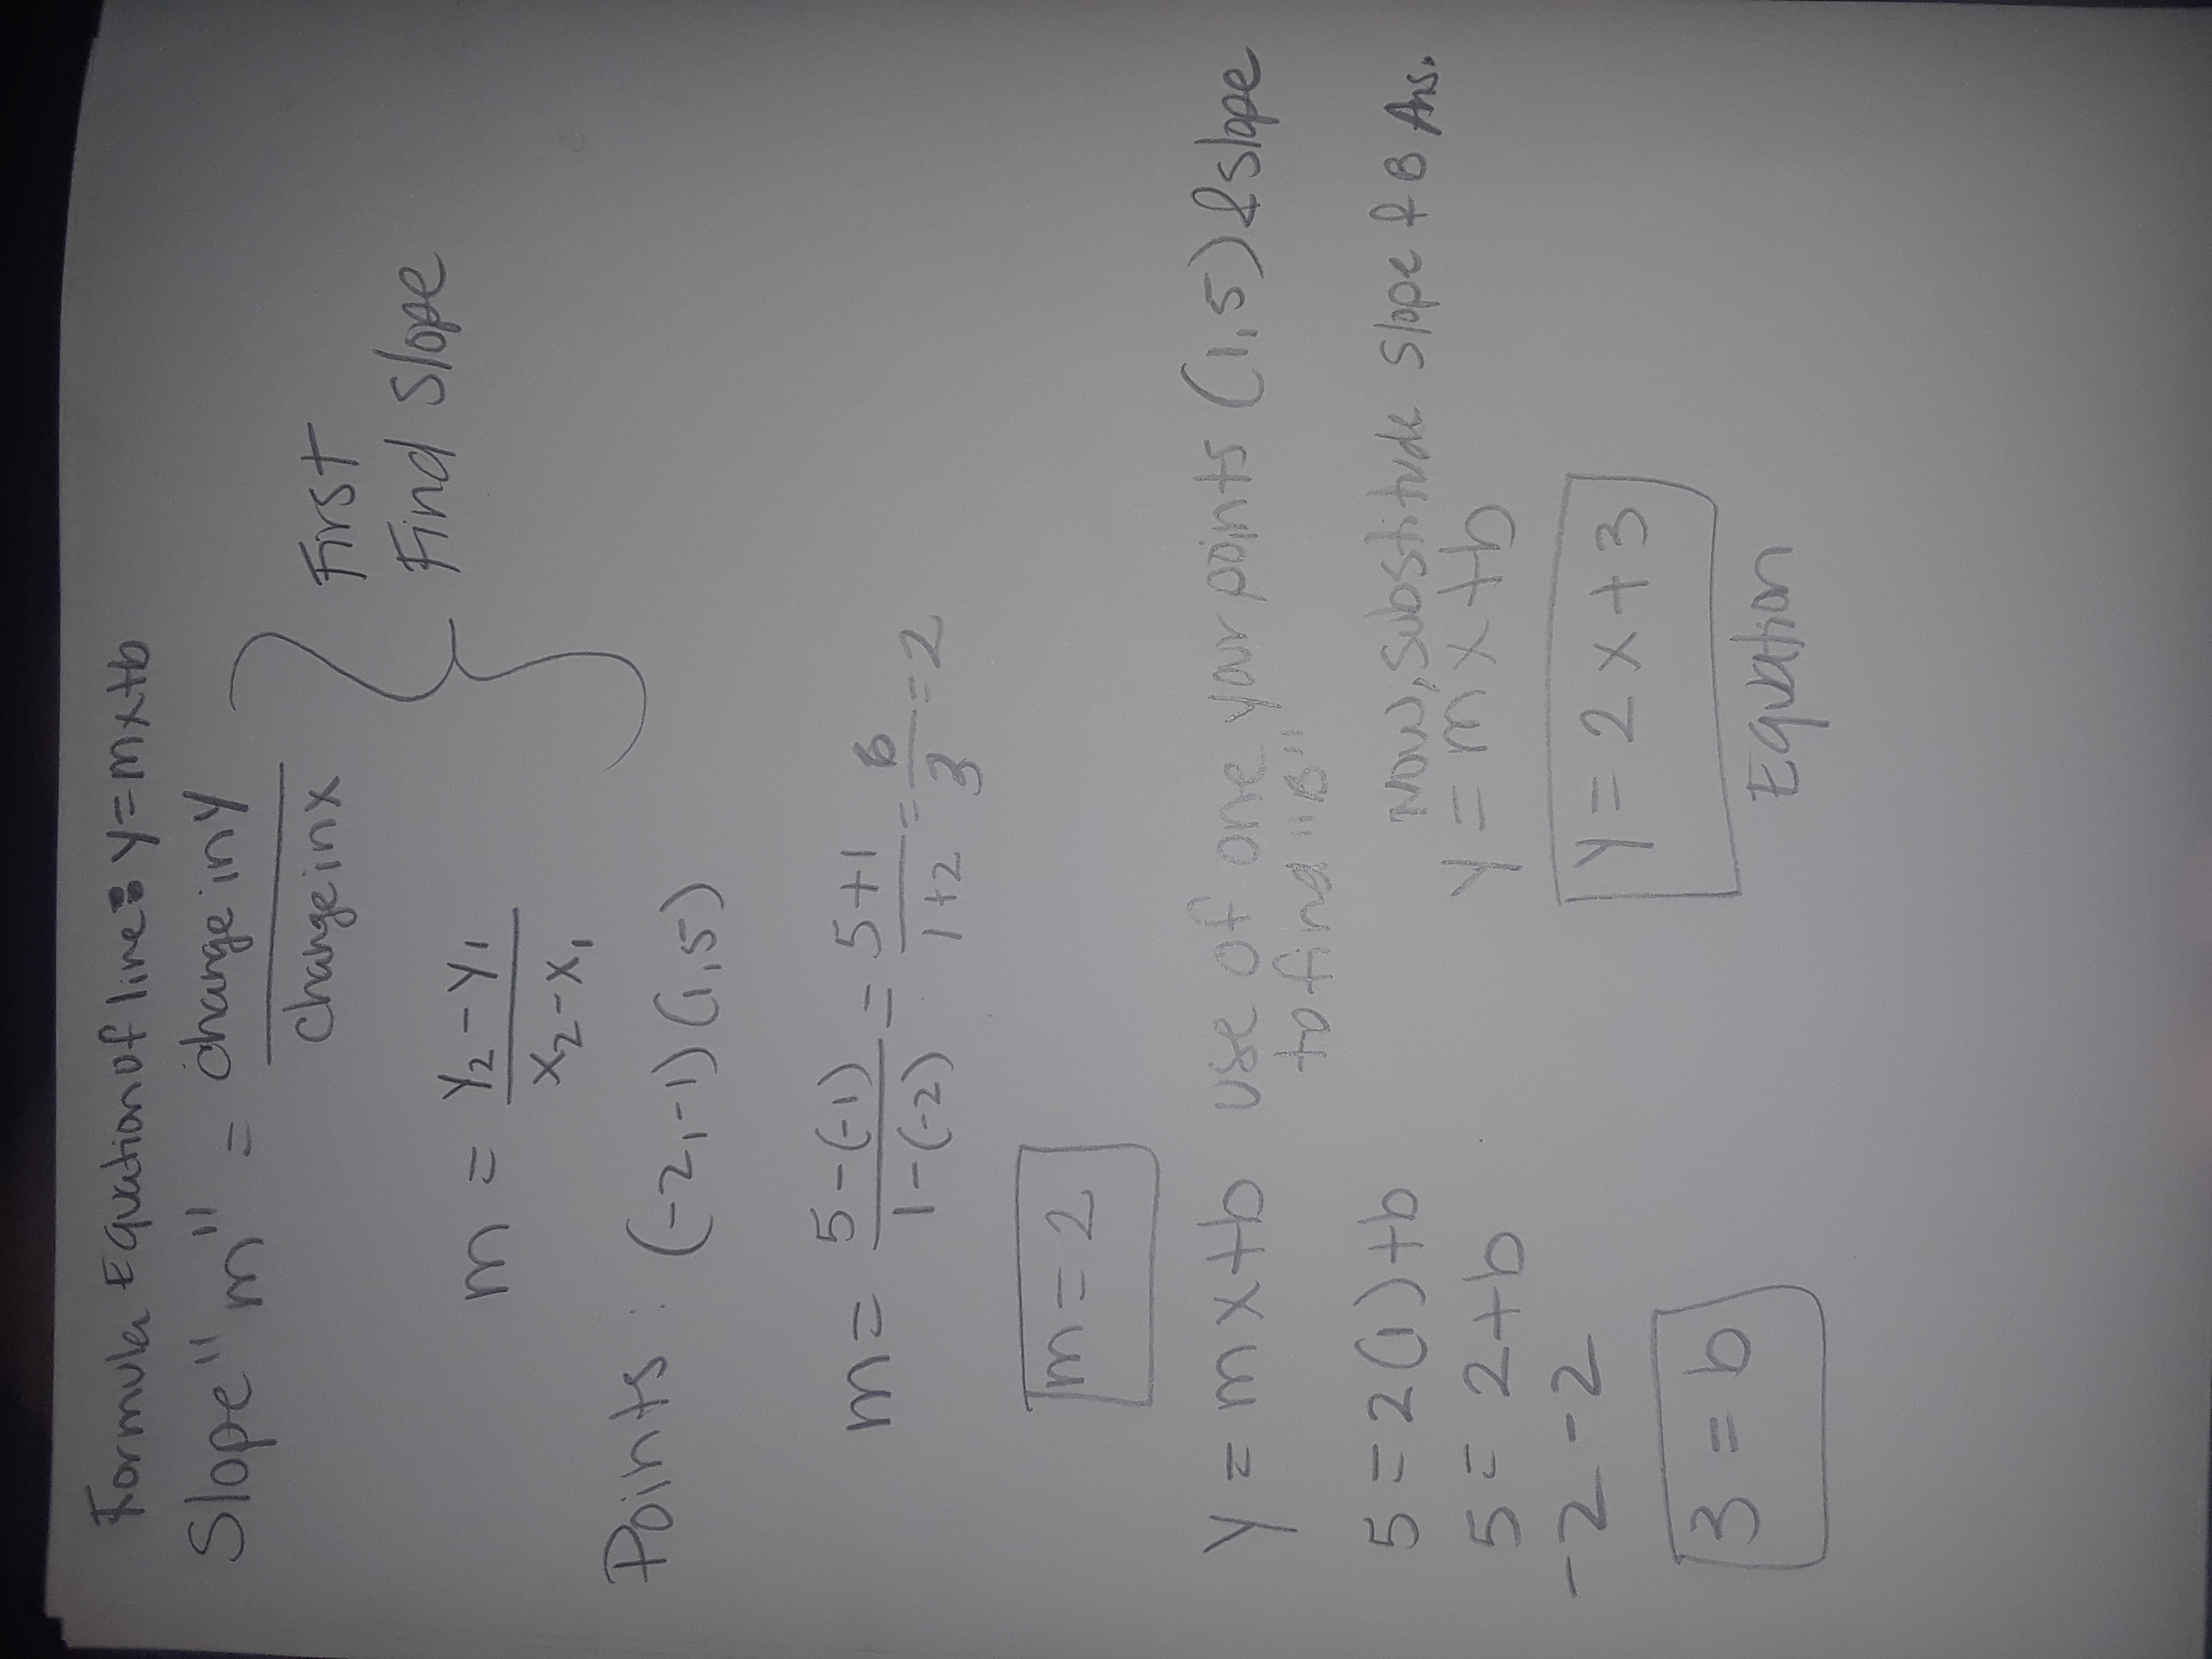 Formula Equation of line: y=mx+b
Slope "m" = change in y
change in x
First
Find Slope
m = y₂-y₁
x₂-x₁
Points: (-2,-1) (1,5)
m = 5-(-1) = 5+1 = 6 = 2
1-(-2) 1+2 3
m=2
y = mx+b use of one your points (1,5) & slope
to find "B"
5=2(1)+b
5=2+b
-2 -2
3=b
Now, substitude slope & B Ans.
y=mx+b
y=2x+3
Equation